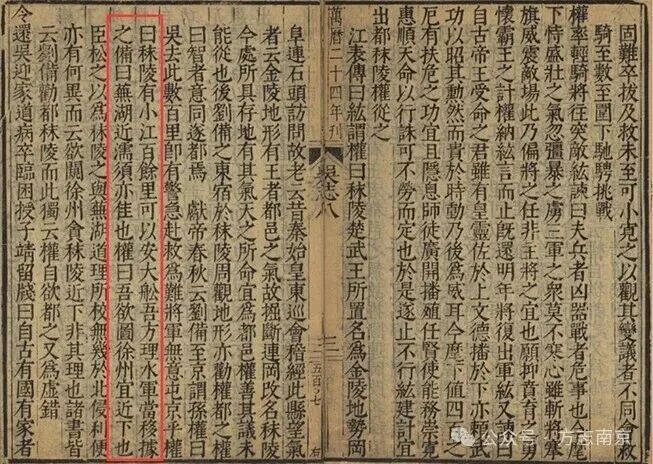 固難卒拔及救未至可小克之以觀其變議者不同會救
騎至數至圍下馳騁挑戰
權率輕騎將往突敵紘諫曰夫兵者凶器戰者危事也今麾
下恃盛壯之氣忽彊暴之虜三軍之衆莫不寒心雖斬將搴
旗威震敵場此乃偏將之任非主將之宜也願抑賁育之勇
懷霸王之計權納紘言而止旣還明年將復出軍紘又諫曰
自古帝王受命之君雖有皇靈佐於上文德播於下亦頼武
功以昭其勳然而貴於時動乃後為威耳今麾下值四百之
厄有扶危之功宜且隱息師徒廣開播殖任賢使能務崇寬
惠順天命以行誅可不勞而定也於是遂止不行紘建計宜
出都秣陵權從之
江表傳曰紘謂權曰秣陵楚武王所置名為金陵地勢岡
萬曆二十四年刊
吳志八
三
五百〇七
右
阜連石頭訪問故老云昔秦始皇東巡會稽經此縣望氣
者云金陵地形有王者都邑之氣故掘斷連岡改名秣陵
今處所具存地有其氣天之所命宜為都邑權善其議未
能從也後劉備之東宿於秣陵周觀地形亦勸權都之權
曰智者意同遂都焉 獻帝春秋云劉備至京謂孫權曰
吳去此數百里即有警急赴救為難將軍無意屯京乎權
曰秣陵有小江百餘里可以安大舩吾方理水軍當移據
之備曰蕪湖近濡須亦佳也權曰吾欲圖徐州宜近下也
臣松之以為秣陵之與蕪湖道理所校無幾於北侵利便
亦有何異而云欲闚徐州貪秣陵近下非其理也諸書皆
云劉備勸都秣陵而此獨云權自欲都之又為虛錯
令還吳迎家道病卒臨困授子靖留牋曰自古有國有家者
公众号·方志南京